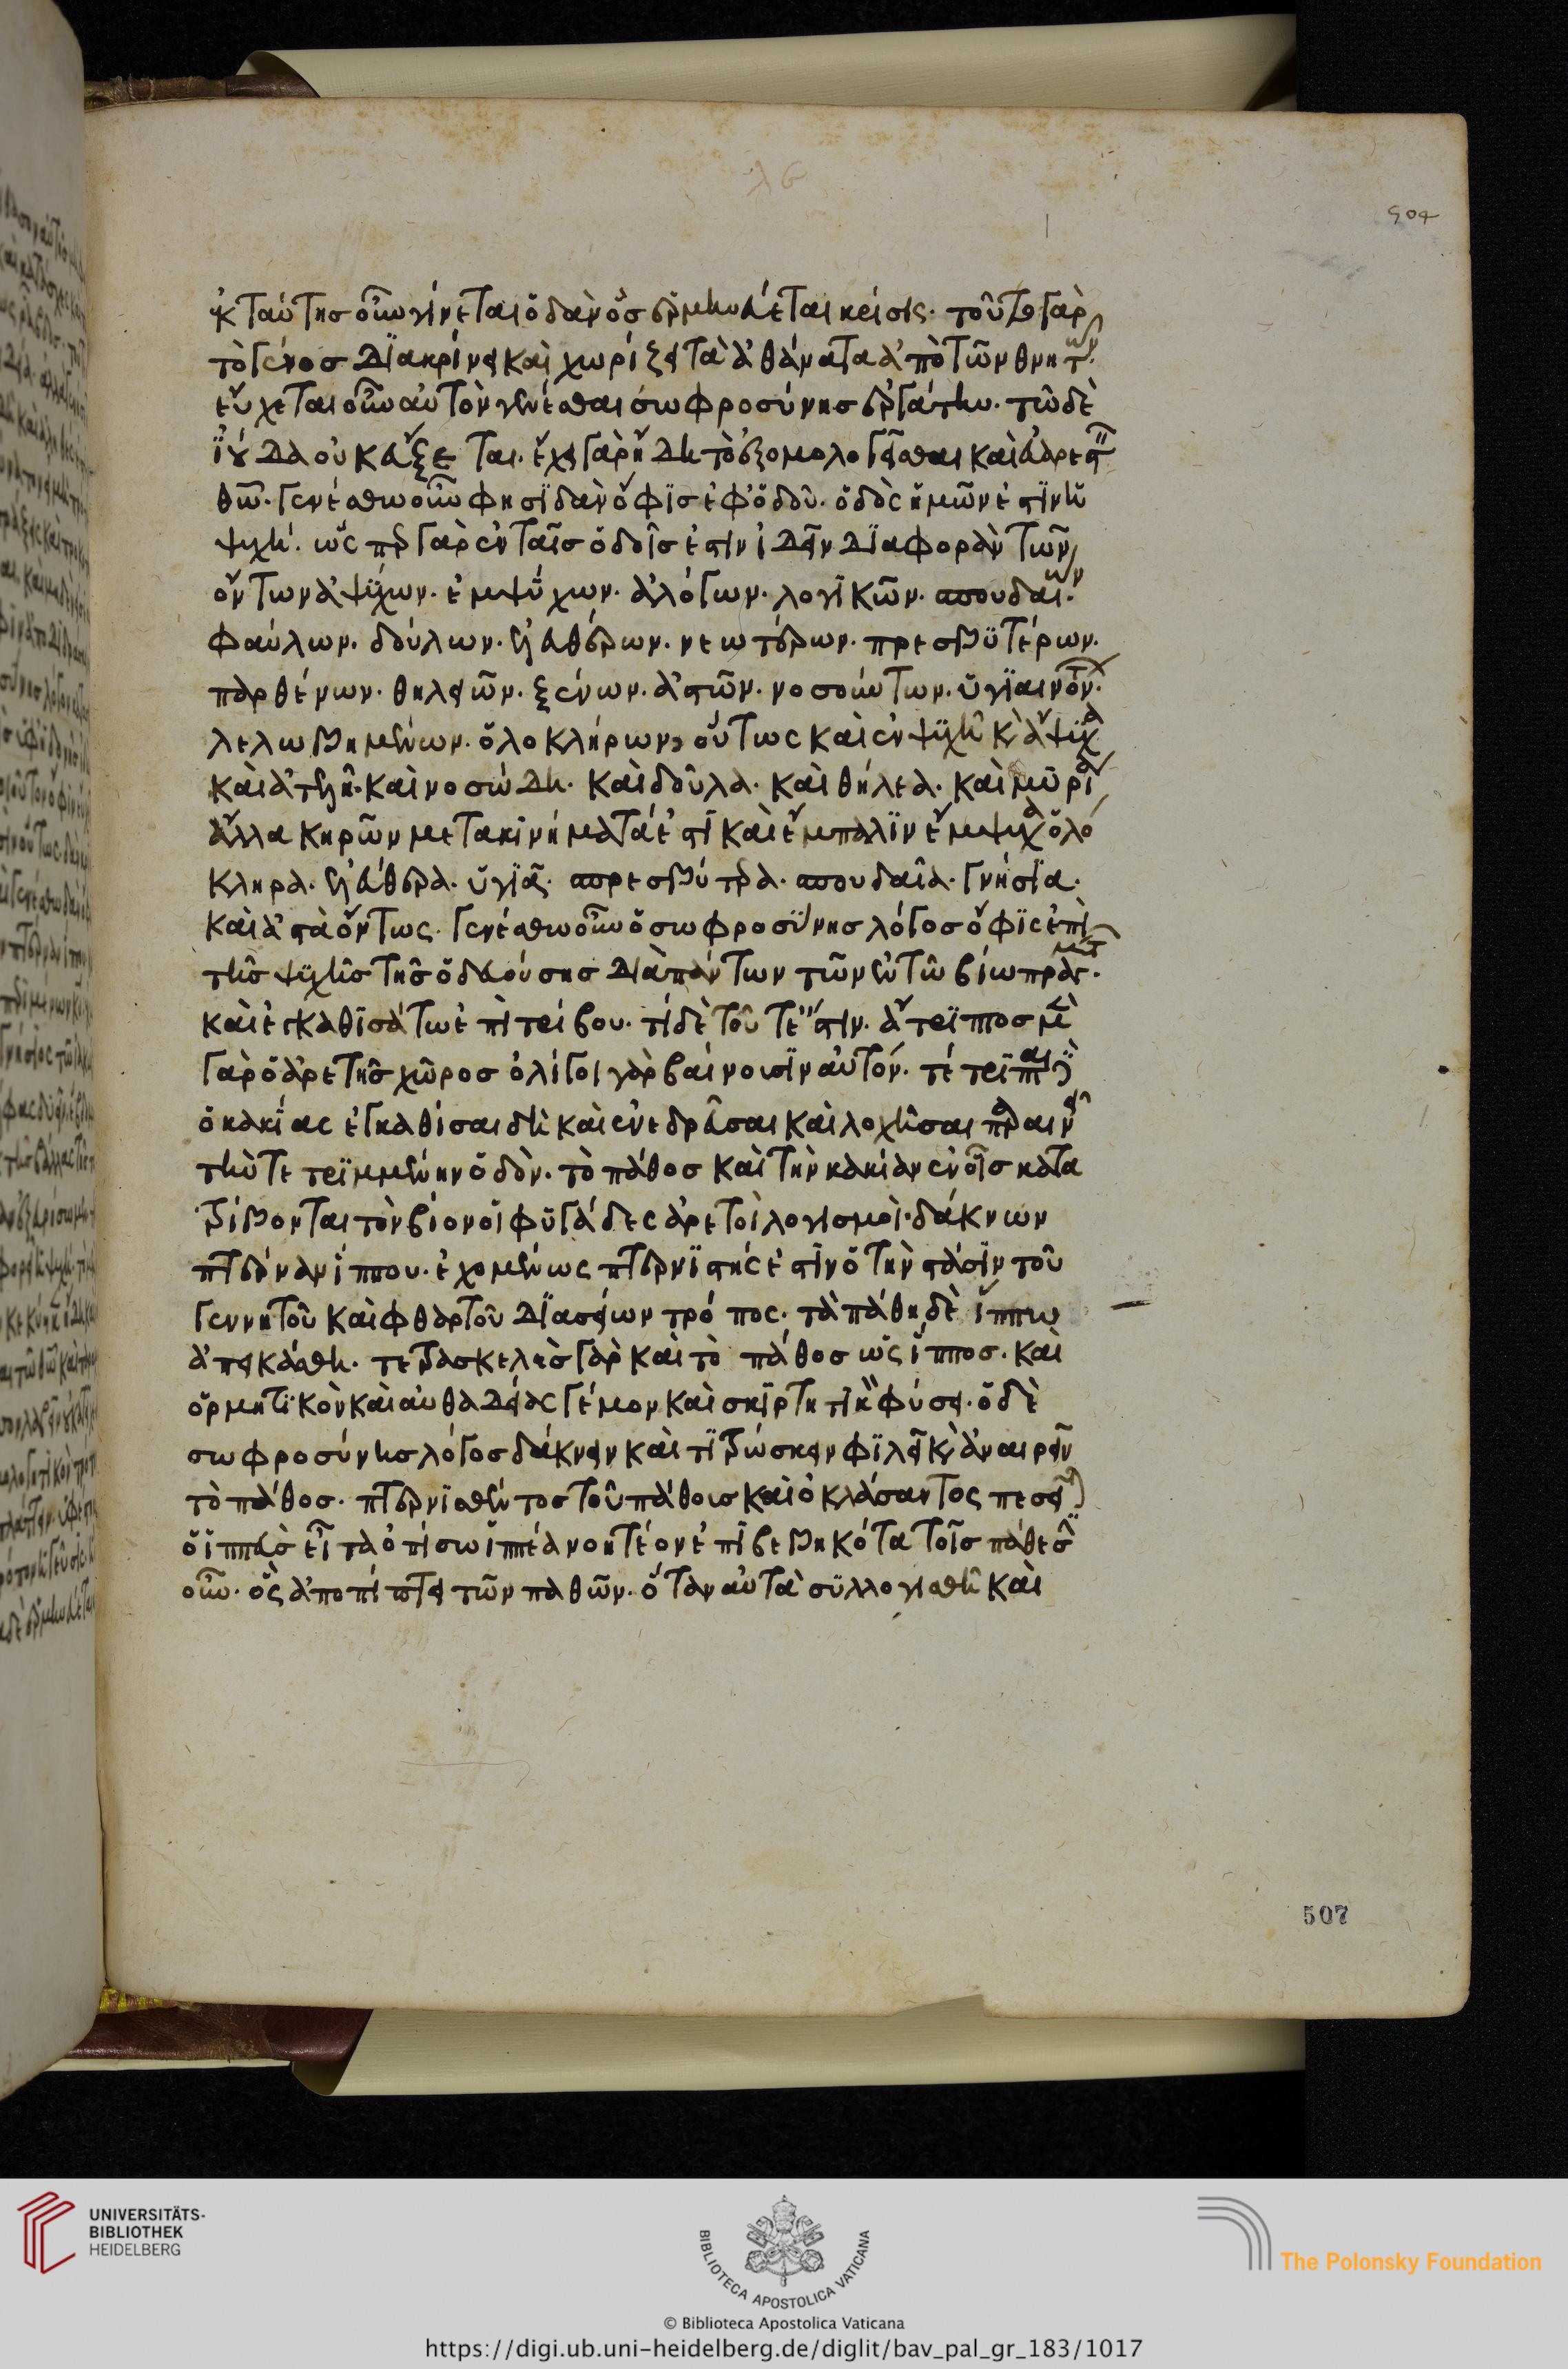 ἐκ ταύτης οὖν γίνεται ὁ δὰν ὃς ἑρμηνεύεται κρίσις· τοῦτο γὰρ
τὸ γένος διακρίνει καὶ χωρίζει τὰ ἀθάνατα ἀπὸ τῶν θνητῶν·
εὔχεται οὖν αὐτὸν γενέσθαι σωφροσύνης ἐργάτην· τῶ δὲ
ἰούδα οὐκ εὔξεται· ἔχει γὰρ ἤδη τὸ ἐξομολογεῖσθαι καὶ εὐαρεστεῖν
θεῶ· γενέσθω οὖν φησὶ δὰν ὄφις ἐφ' ὁδοῦ· ὁδὸς ἡμῶν ἐστὶν ἡ
ψυχή· ὥσπερ γὰρ ἐν ταῖς ὁδοῖς ἐστὶν ἰδεῖν διαφορὰν τῶν
ὄντων ἀψύχων· ἐμψύχων· ἀλόγων· λογικῶν· σπουδαίων·
φαύλων· δούλων· ἐλευθέρων· νεωτέρων· πρεσβυτέρων·
παρθένων· θηλειῶν· ξένων· ἀστῶν· νοσούντων· ὑγιαινόντων·
λελωβημένων· ὁλοκλήρων, οὕτως καὶ ἐν ψυχῆ καὶ ἄψυχα
καὶ ἀτελῆ· καὶ νοσώδη· καὶ δοῦλα· καὶ θήλεα· καὶ μυρία
ἄλλα κηρῶν μετακινήματά ἐστι καὶ ἔμπαλιν ἔμψυχα ὁλό
κληρα· ἐλεύθερα· ὑγιᾶ· πρεσβύτερα· σπουδαῖα· γνήσια·
καὶ ἀστὰ ὄντως· γενέσθω οὖν ὁ σωφροσύνης λόγος ὄφις ἐπὶ
τῆς ψυχῆς τῆς ὁδευούσης διὰ πάντων τῶν ἐν τῶ βίω πραγμάτων·
καὶ ἐγκαθισάτω ἐπὶ τρίβου· τί δὲ τοῦτ' ἐστιν· ἄτριπτος μὲν
γὰρ ὁ ἀρετῆς χῶρος ὀλίγοι γὰρ βαίνουσιν αὐτόν· τέτριπται δὲ
ὁ κακίας ἐγκαθίσαι δὴ καὶ ἐνεδρεῦσαι καὶ λοχῆσαι παραινεῖ
τὴν τετριμμένην ὁδὸν· τὸ πάθος καὶ τὴν κακίαν ἐν οἷς κατα
τρίβονται τὸν βίον οἱ φυγάδες ἀρετοὶ λογισμοὶ· δάκνων
πτέρναν ἵππου· ἐχομένως πτερνιστής ἐστιν ὁ τὴν στάσιν τοῦ
γεννητοῦ καὶ φθαρτοῦ διασείων τρόπος· τὰ πάθη δὲ ἵππω
ἀπεικάσθη· τετρασκελὲς γὰρ καὶ τὸ πάθος ὡς ἵππος· καὶ
ὁρμητικὸν καὶ αὐθαδείας γέμον καὶ σκιρτητικὸν φύσει· ὁ δὲ
σωφροσύνης λόγος δάκνειν καὶ τιτρώσκειν φιλεῖ καὶ ἀναιρεῖν
τὸ πάθος· πτερνισθέντος τοῦ πάθους καὶ ὀκλάσαντος πεσεῖται
ὁ ἱππεὺς εἰς τὰ ὀπίσω ἱππέα νοητέον ἐπιβεβηκότα τοῖς πάθεσι
νοῦν· ὃς ἀποπίπτει τῶν παθῶν· ὅταν αὐτὰ συλλογισθῆ καὶ
507
UNIVERSITÄTS-
BIBLIOTHEK
HEIDELBERG
BIBLIOTECA APOSTOLICA VATICANA
The Polonsky Foundation
© Biblioteca Apostolica Vaticana
https://digi.ub.uni-heidelberg.de/diglit/bav_pal_gr_183/1017